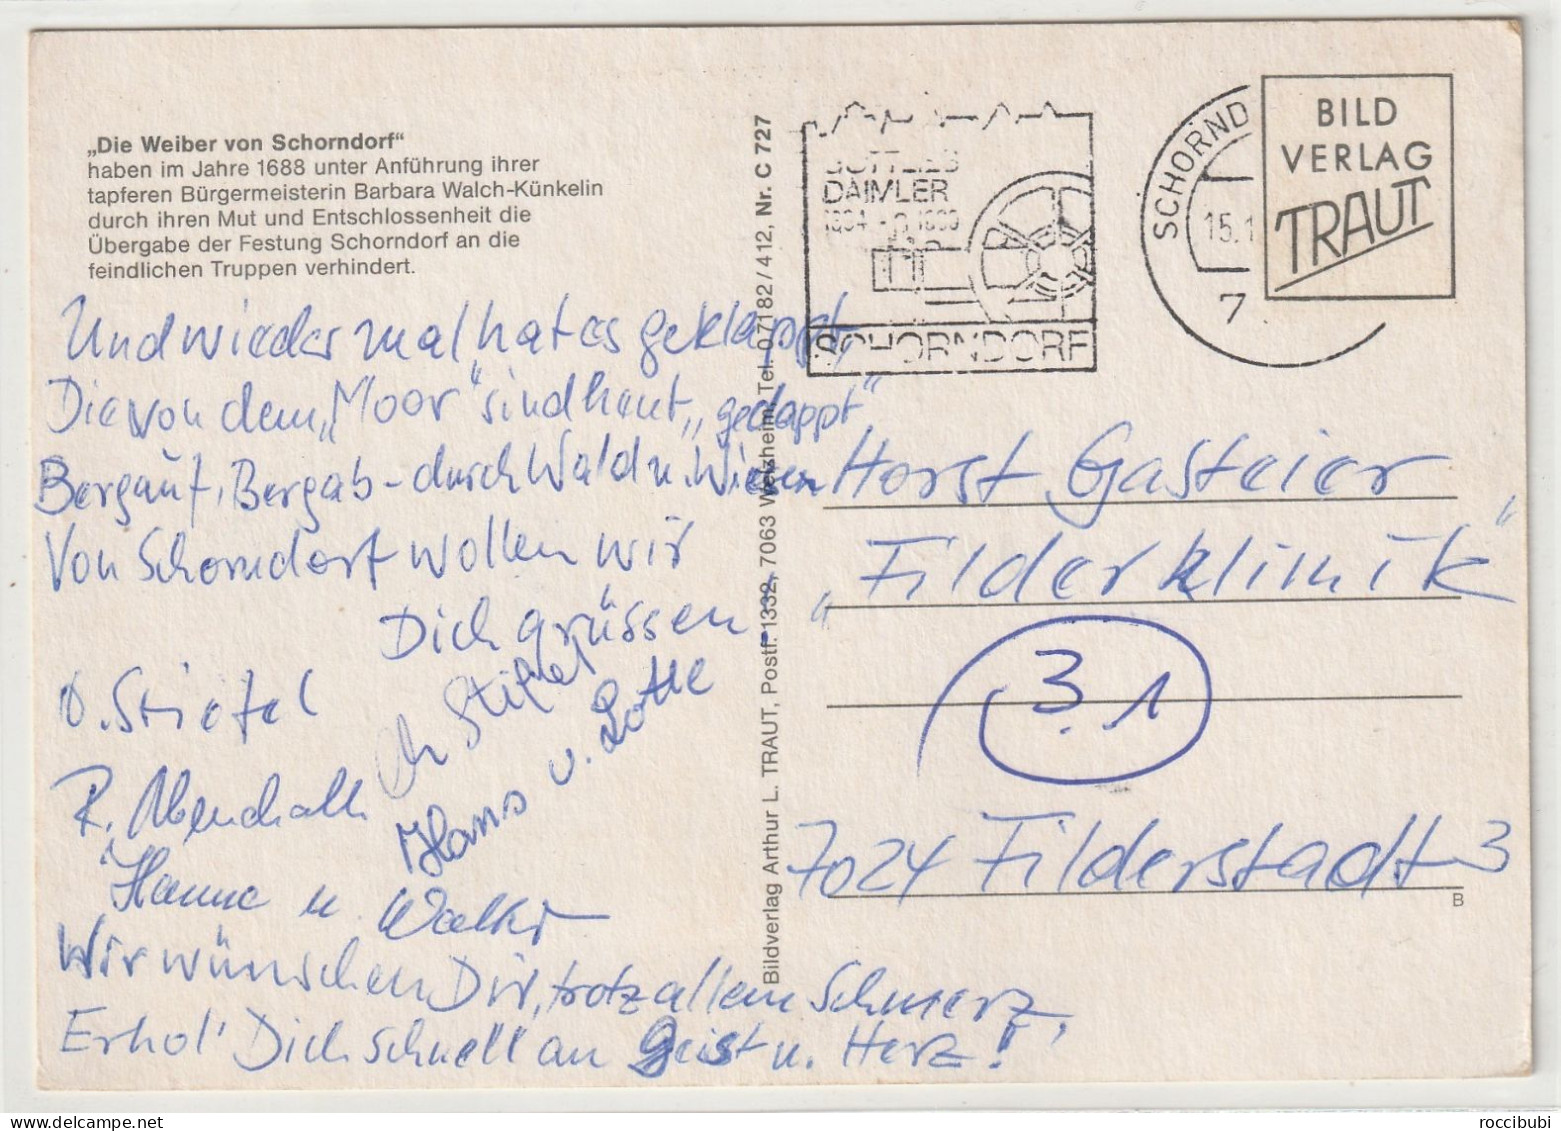 „Die Weiber von Schorndorf“
haben im Jahre 1688 unter Anführung ihrer
tapferen Bürgermeisterin Barbara Walch-Künkelin
durch ihren Mut und Entschlossenheit die
Übergabe der Festung Schorndorf an die
feindlichen Truppen verhindert.
Und wieder mal hat es geklappt,
Die von dem „Moor“ sind heut „gedappt“
Bergauf, Bergab - durch Wald u. Wiesen
Von Schorndorf wollen wir
Dich grüssen.
O. Stiefel
Stiefel
R. Abendhalk
Hans u. Lotte
Hanne u. Walter
Wir wünschen Dir, trotz allem Schmerz,
Erhol' Dich schnell an Geist u. Herz!
Bildverlag Arthur L. TRAUT, Postf. 1332, 7063 Welzheim, Tel. 0 71 82 / 412, Nr. C 727
GOTTLIEB
DAIMLER
SCHORNDORF
SCHORND
15.1
7
BILD
VERLAG
TRAUT
Horst Gasteier
„Filderklinik“
3.1
7024 Filderstadt 3
B
roccibubi